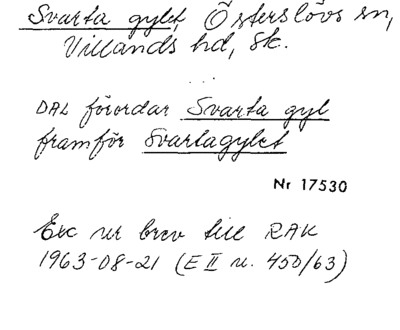 Svarta gylet, Österslövs sn,
Villands hd, Sk.
...
DAL förordar Svarta gyl
framför Svartagylet
Nr 17530
Exc ur brev till RAK
1963-08-21 (E II u. 450/63)